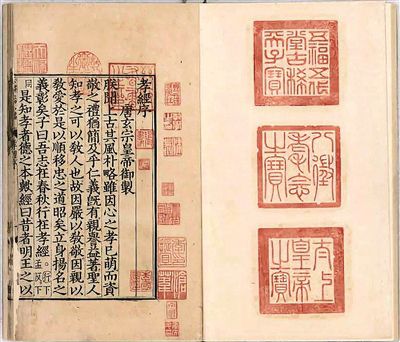 五福五代
堂古稀
天子寶
八徵
耄念
之寶
太上
皇帝
之寶
孝經序
唐玄宗皇帝御製
朕聞上古其風朴略雖因心之孝已萌而資
敬之禮猶簡及乎仁義既有親譽益著聖人
知孝之可以敎人也故因嚴以敎敬因親以
敎愛於是以順移忠之道昭矣立身揚名之
義彰矣子曰吾志在春秋行在孝經。行下孟反下
同是知孝者德之本歟經曰昔者明王之以